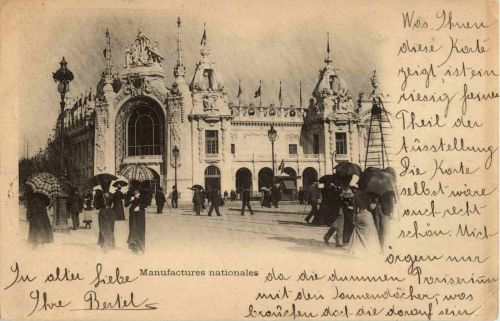 Was Ihnen
diese Karte
zeigt ist ein
riesig feiner
Theil der
Ausstellung
Die Karte
selbst wäre
auch recht
schön. Mich
ärgern nur
da die dummen Pariserinn
mit den Sonnendächer, was
brauchen doch die darauf sein.
Manufactures nationales
In alter Liebe
Ihre Bertel